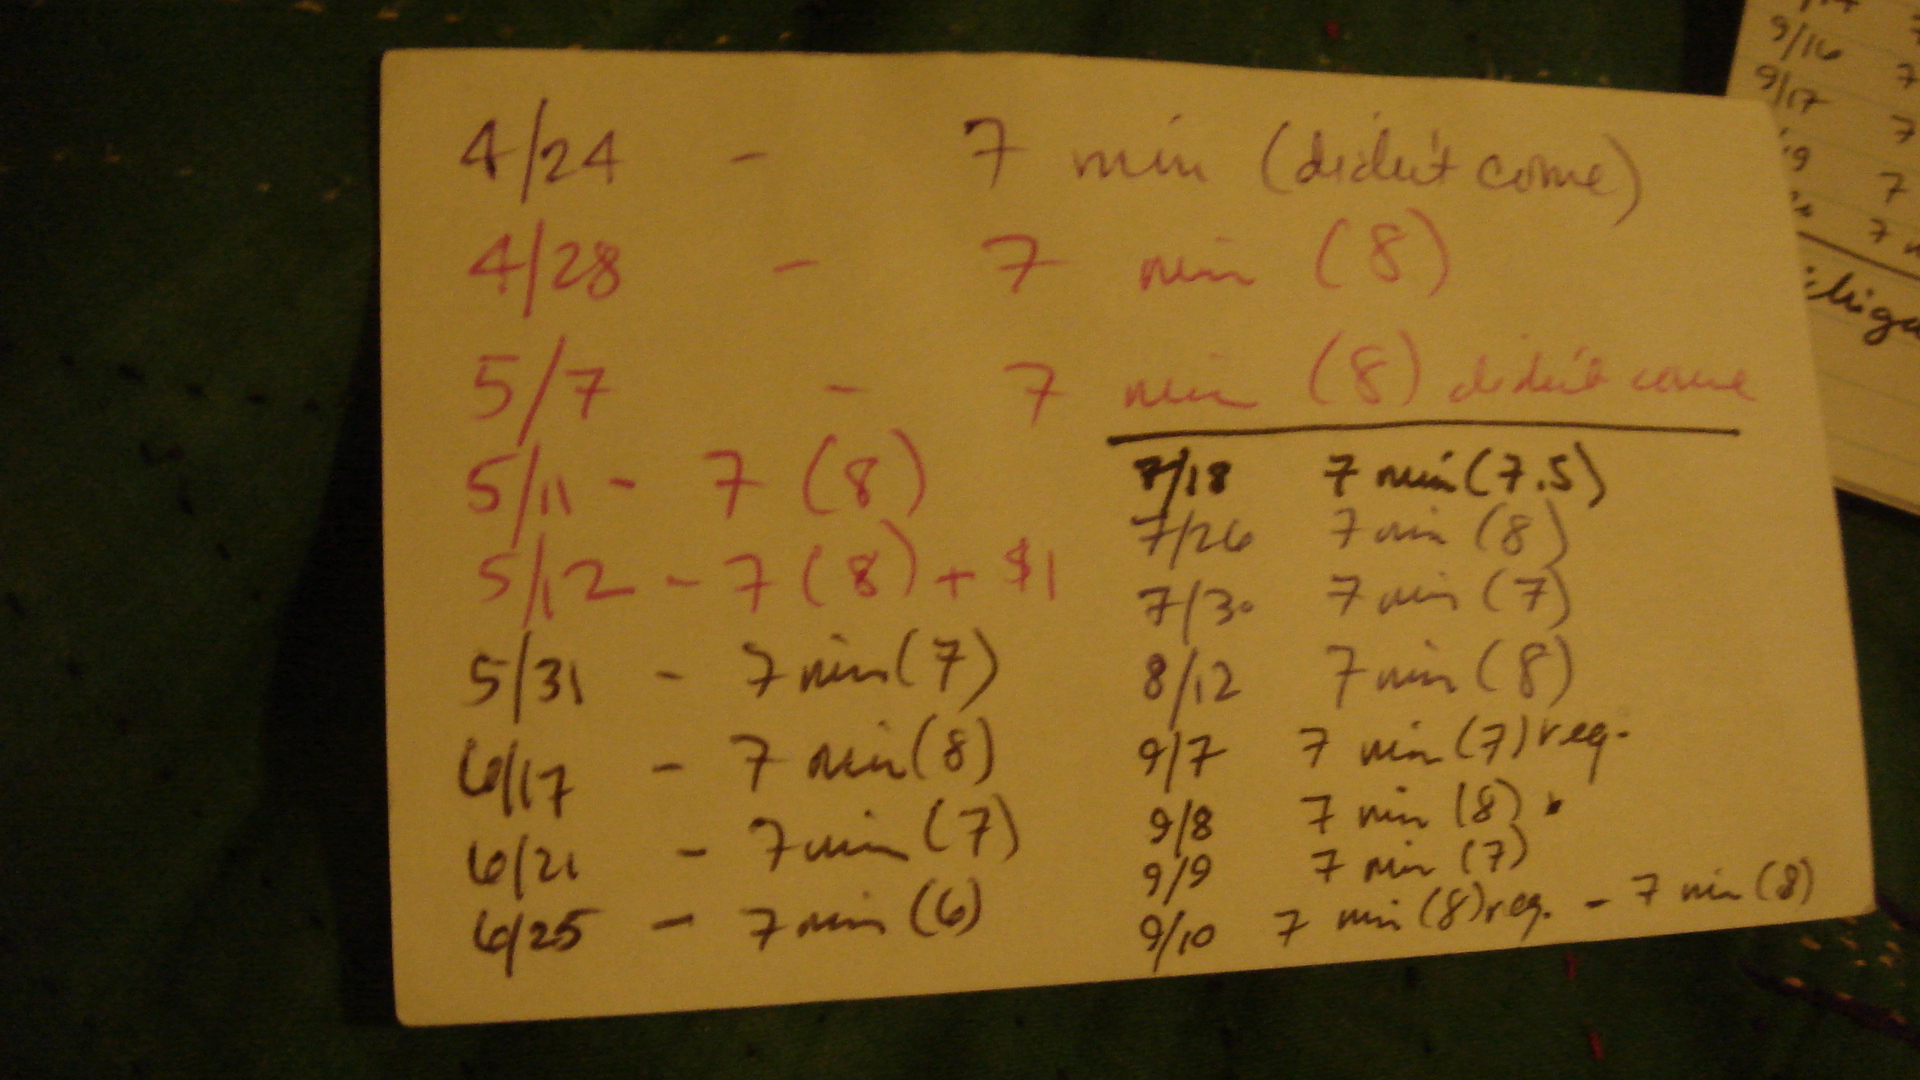 4/24 - 7 min (didn't come)
4/28 - 7 min (8)
5/7 - 7 min (8) didn't come
5/11 - 7 (8)
5/12 - 7 (8) + $1
5/31 - 7 min (7)
6/17 - 7 min (8)
6/21 - 7 min (7)
6/25 - 7 min (6)
7/18 7 min (7.5)
7/26 7 min (8)
7/30 7 min (7)
8/12 7 min (8)
9/7 7 min (7) reg.
9/8 7 min (8) .
9/9 7 min (7)
9/10 7 min (8) reg. - 7 min (8)
9/16 7
9/17 7
7
7